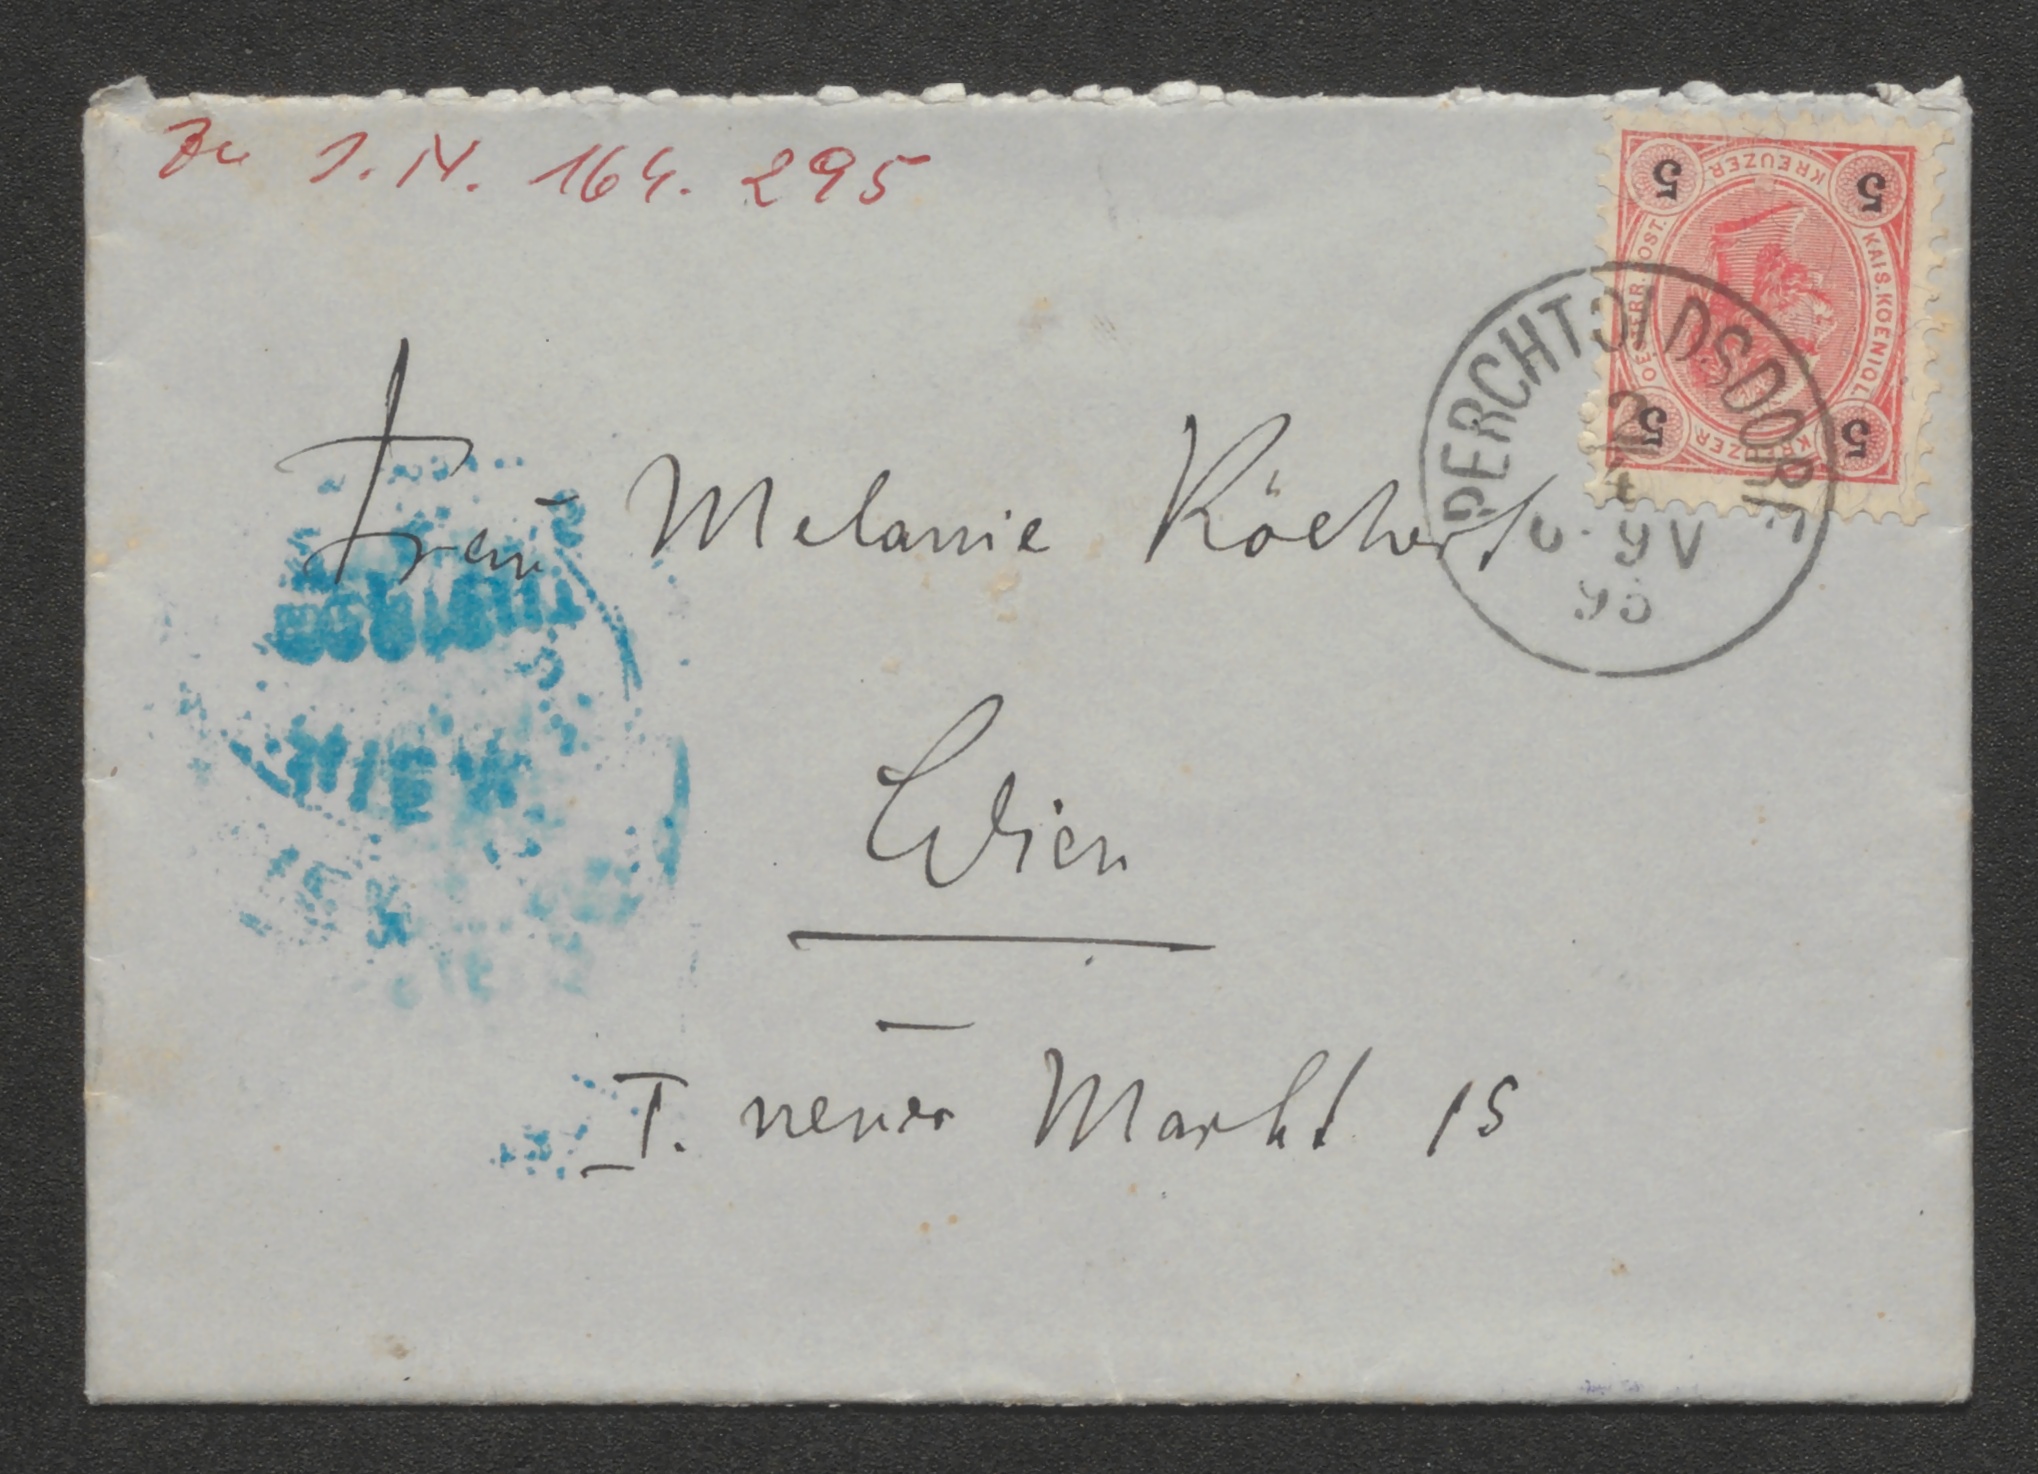 Zu I.N. 164.295
5 KREUZER 5
KAIS. KOENIGL. OESTERR. POST.
5 KREUZER 5
PERCHTOLDSDORF
2
4
9V
95
Frau Melanie Köchert
Wien
WIEN
I. neuer Markt 15